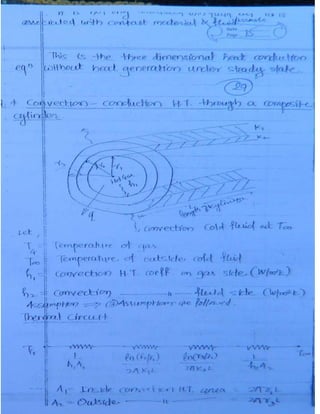 associated with contact material & fluid
Date
Page 15
This is the three dimensional heat conduction
eqn without heat generation under steady state.
Convection - conduction H.T. through a composite
cylinder
K1
K2
Hot Gas
h1
q
length of cylinder
convection cold fluid at T∞
Let,
Tg = Temperature of gas
T∞ Temperature of outside cold fluid
h1 = convection H.T. coeff on gas side (W/m²k)
h2 = convection —"— fluid side (W/m²k)
Assumption => Assumptions are followed.
Thermal Circuit
T∞
1/h1A1 ln(r2/r1)/2πK1L ln(r3/r2)/2πK2L 1/h2A2
A1 = Inside convection H.T. area = 2πr1L
A2 = Outside —"— = 2πr3L